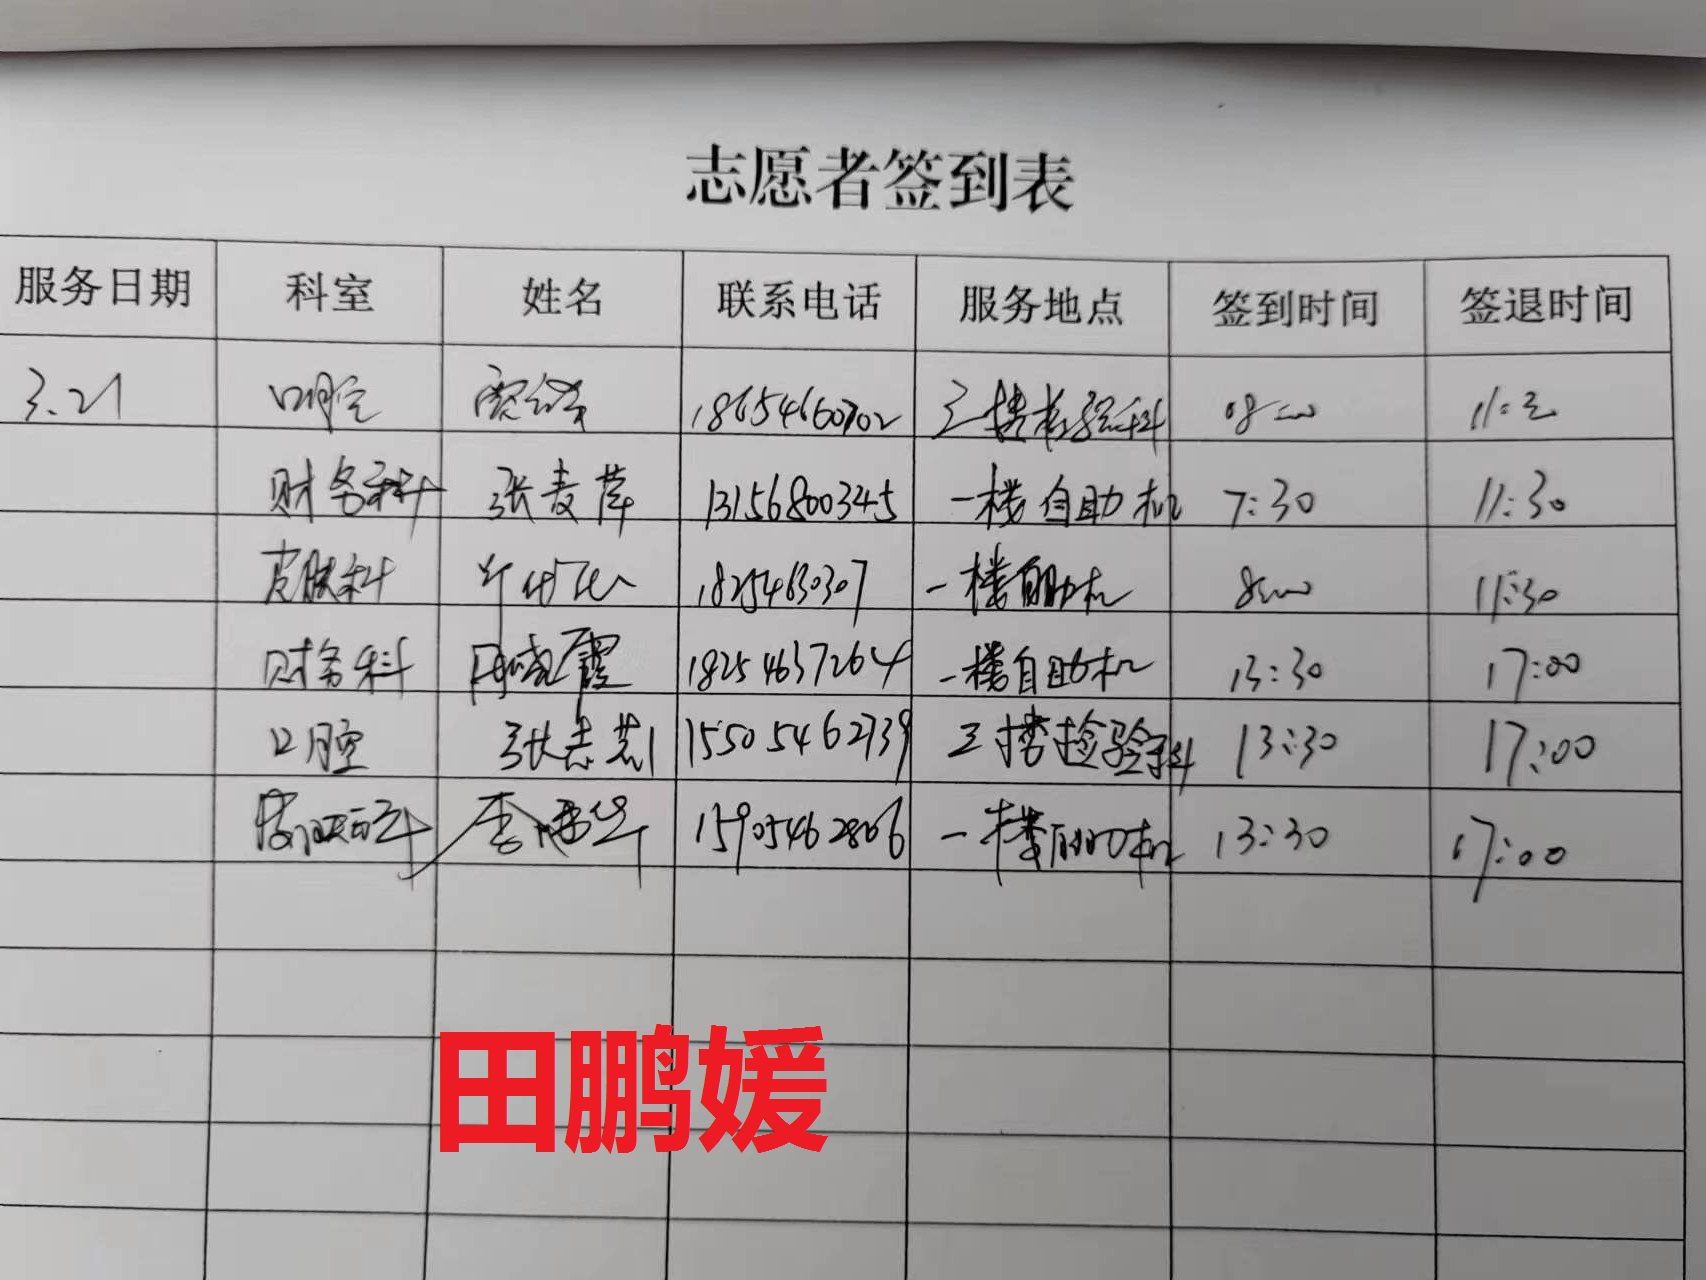 志愿者签到表
服务日期 科室 姓名 联系电话 服务地点 签到时间 签退时间
3.21 口腔 18654660702 三楼检验科 08:00 11:30
财务科 张麦萍 13156800345 一楼自助机 7:30 11:30
皮肤科 18254630307 一楼自助机 8:00 11:30
财务科 周晓霞 18254637264 一楼自助机 13:30 17:00
口腔 张志芸 15505462739 三楼检验科 13:30 17:00
皮肤科 李 华 15905462806 一楼自助机 13:30 17:00
田鹏媛